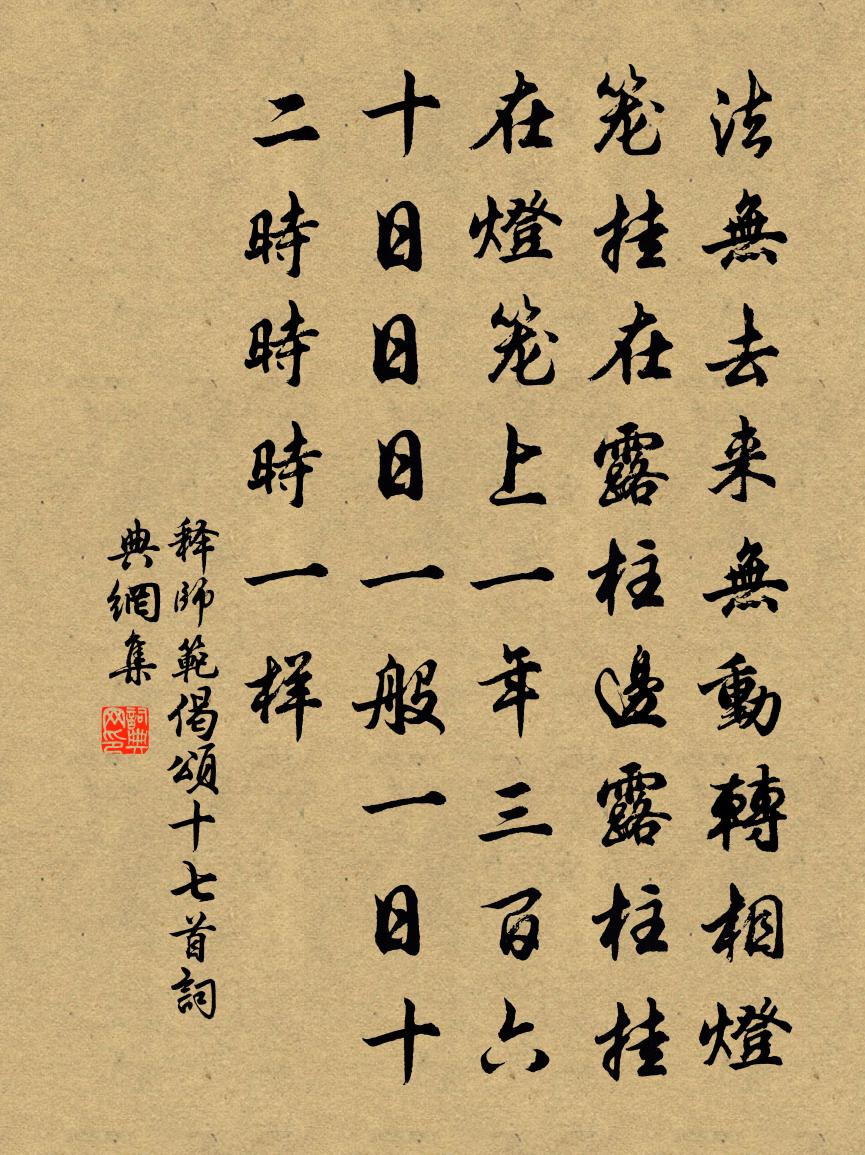 法無去来無動轉相燈
笼挂在露柱邊露柱挂
在燈笼上一年三百六
十日日日一般一日十
二時時時一样
释師範偈頌十七首詞
典網集
詞典
网印